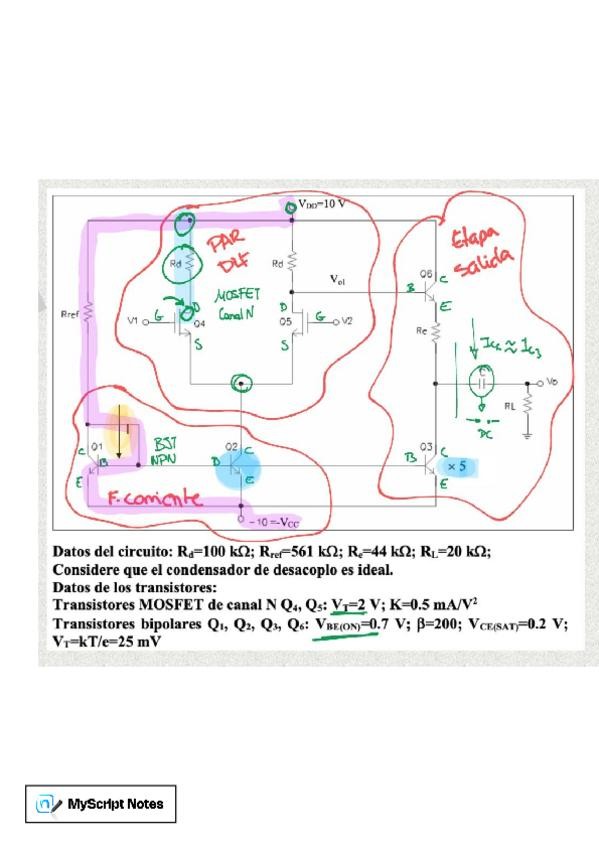 V_DD=10 V
Etapa
salida
PAR
DIF
Rd
Rd
Q6
C
B
E
V_o1
MOSFET
Canal N
D
D
Rref
V1
G
Q4
Q5
G
V2
S
S
Re
I_C6 ≈ I_C3
C
Vo
RL
DC
I
Q1
BJT
NPN
Q2
C
C
B
B
E
E
Q3
C
B
E
× 5
F. corriente
- 10 =-V_CC
Datos del circuito: R_d=100 kΩ; R_ref=561 kΩ; R_e=44 kΩ; R_L=20 kΩ;
Considere que el condensador de desacoplo es ideal.
Datos de los transistores:
Transistores MOSFET de canal N Q₄, Q₅: V_T=2 V; K=0.5 mA/V²
Transistores bipolares Q₁, Q₂, Q₃, Q₆: V_BE(ON)=0.7 V; β=200; V_CE(SAT)=0.2 V;
V_T=kT/e=25 mV
MyScript Notes